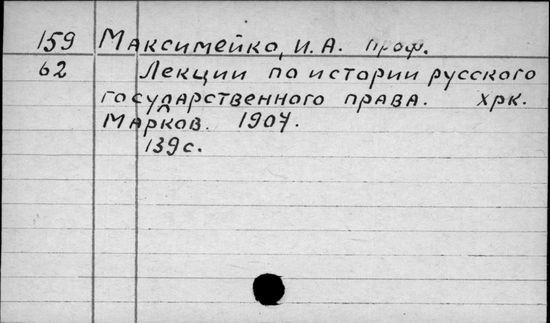 159 Максимейко, И. А. проф.
62 Лекции по истории русского
государственного права. Хрк.
Марков. 1907.
139с.